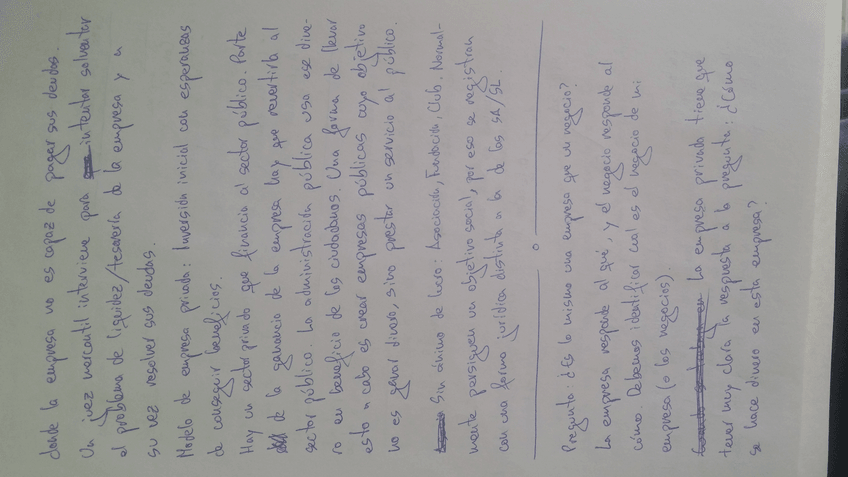 donde la empresa no es capaz de pagar sus deudas.
Un juez mercantil interviene para intentar solventar
el problema de liquidez/tesorería de la empresa y a
su vez resolver sus deudas.
Modelo de empresa privada: Inversión inicial con esperanzas
de conseguir beneficios.
Hay un sector privado que financia al sector público. Parte
de la ganancia de la empresa hay que revertirla al
sector público. La administración pública usa ese dine-
ro en beneficio de los ciudadanos. Una forma de llevar
esto a cabo es crear empresas públicas cuyo objetivo
no es ganar dinero, sino prestar un servicio al público.
Sin ánimo de lucro: Asociación, Fundación, Club. Normal-
mente persiguen un objetivo social, por eso se registran
con una forma jurídica distinta a la de las SA/SL.
Pregunta: ¿Es lo mismo una empresa que un negocio?
La empresa responde al qué, y el negocio responde al
cómo. Debemos identificar cual es el negocio de mi
empresa (o los negocios)
La empresa privada tiene que
tener muy clara la respuesta a la pregunta: ¿Cómo
se hace dinero en esta empresa?